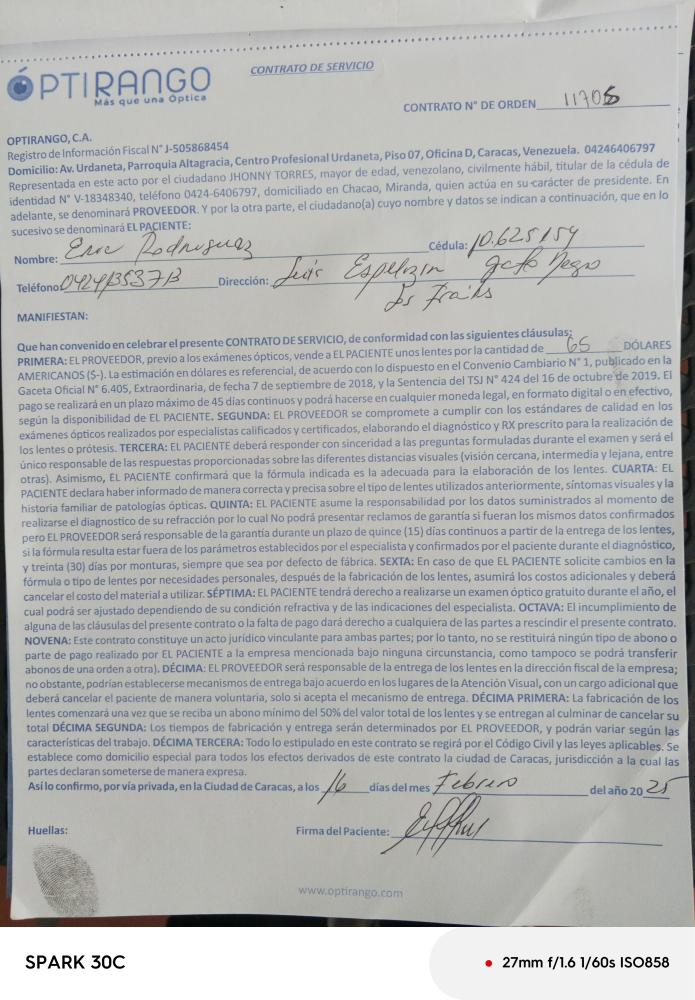 CONTRATO DE SERVICIO
ÓPTIRANGO
Más que una Óptica
CONTRATO N° DE ORDEN 11705
OPTIRANGO, C.A.
Registro de Información Fiscal N° J-505868454
Domicilio: Av. Urdaneta, Parroquia Altagracia, Centro Profesional Urdaneta, Piso 07, Oficina D, Caracas, Venezuela. 04246406797
Representada en este acto por el ciudadano JHONNY TORRES, mayor de edad, venezolano, civilmente hábil, titular de la cédula de
identidad N° V-18348340, teléfono 0424-6406797, domiciliado en Chacao, Miranda, quien actúa en su carácter de presidente. En
adelante, se denominará PROVEEDOR. Y por la otra parte, el ciudadano(a) cuyo nombre y datos se indican a continuación, que en lo
sucesivo se denominará EL PACIENTE:
Nombre: Eric Rodriguez Cédula: 10.625154
Teléfono Dirección: Luis Espelozin Gato Negro
Los Frailes
MANIFIESTAN:
Que han convenido en celebrar el presente CONTRATO DE SERVICIO, de conformidad con las siguientes cláusulas:
PRIMERA: EL PROVEEDOR, previo a los exámenes ópticos, vende a EL PACIENTE unos lentes por la cantidad de 65 DÓLARES
AMERICANOS ($-). La estimación en dólares es referencial, de acuerdo con lo dispuesto en el Convenio Cambiario N° 1, publicado en la
Gaceta Oficial N° 6.405, Extraordinaria, de fecha 7 de septiembre de 2018, y la Sentencia del TSJ N° 424 del 16 de octubre de 2019. El
pago se realizará en un plazo máximo de 45 días continuos y podrá hacerse en cualquier moneda legal, en formato digital o en efectivo,
según la disponibilidad de EL PACIENTE. SEGUNDA: EL PROVEEDOR se compromete a cumplir con los estándares de calidad en los
exámenes ópticos realizados por especialistas calificados y certificados, elaborando el diagnóstico y RX prescrito para la realización de
los lentes o prótesis. TERCERA: EL PACIENTE deberá responder con sinceridad a las preguntas formuladas durante el examen y será el
único responsable de las respuestas proporcionadas sobre las diferentes distancias visuales (visión cercana, intermedia y lejana, entre
otras). Asimismo, EL PACIENTE confirmará que la fórmula indicada es la adecuada para la elaboración de los lentes. CUARTA: EL
PACIENTE declara haber informado de manera correcta y precisa sobre el tipo de lentes utilizados anteriormente, síntomas visuales y la
historia familiar de patologías ópticas. QUINTA: EL PACIENTE asume la responsabilidad por los datos suministrados al momento de
realizarse el diagnostico de su refracción por lo cual No podrá presentar reclamos de garantía si fueran los mismos datos confirmados
pero EL PROVEEDOR será responsable de la garantía durante un plazo de quince (15) días continuos a partir de la entrega de los lentes,
si la fórmula resulta estar fuera de los parámetros establecidos por el especialista y confirmados por el paciente durante el diagnóstico,
y treinta (30) días por monturas, siempre que sea por defecto de fábrica. SEXTA: En caso de que EL PACIENTE solicite cambios en la
fórmula o tipo de lentes por necesidades personales, después de la fabricación de los lentes, asumirá los costos adicionales y deberá
cancelar el costo del material a utilizar. SÉPTIMA: EL PACIENTE tendrá derecho a realizarse un examen óptico gratuito durante el año, el
cual podrá ser ajustado dependiendo de su condición refractiva y de las indicaciones del especialista. OCTAVA: El incumplimiento de
alguna de las cláusulas del presente contrato o la falta de pago dará derecho a cualquiera de las partes a rescindir el presente contrato.
NOVENA: Este contrato constituye un acto jurídico vinculante para ambas partes; por lo tanto, no se restituirá ningún tipo de abono o
parte de pago realizado por EL PACIENTE a la empresa mencionada bajo ninguna circunstancia, como tampoco se podrá transferir
abonos de una orden a otra). DÉCIMA: EL PROVEEDOR será responsable de la entrega de los lentes en la dirección fiscal de la empresa;
no obstante, podrían establecerse mecanismos de entrega bajo acuerdo en los lugares de la Atención Visual, con un cargo adicional que
deberá cancelar el paciente de manera voluntaria, solo si acepta el mecanismo de entrega. DÉCIMA PRIMERA: La fabricación de los
lentes comenzará una vez que se reciba un abono mínimo del 50% del valor total de los lentes y se entregan al culminar de cancelar su
total DÉCIMA SEGUNDA: Los tiempos de fabricación y entrega serán determinados por EL PROVEEDOR, y podrán variar según las
características del trabajo. DÉCIMA TERCERA: Todo lo estipulado en este contrato se regirá por el Código Civil y las leyes aplicables. Se
establece como domicilio especial para todos los efectos derivados de este contrato la ciudad de Caracas, jurisdicción a la cual las
partes declaran someterse de manera expresa.
Así lo confirmo, por vía privada, en la Ciudad de Caracas, a los 16 días del mes Febrero del año 2025
Huellas: Firma del Paciente:
www.optirango.com
SPARK 30C
27mm f/1.6 1/60s ISO858